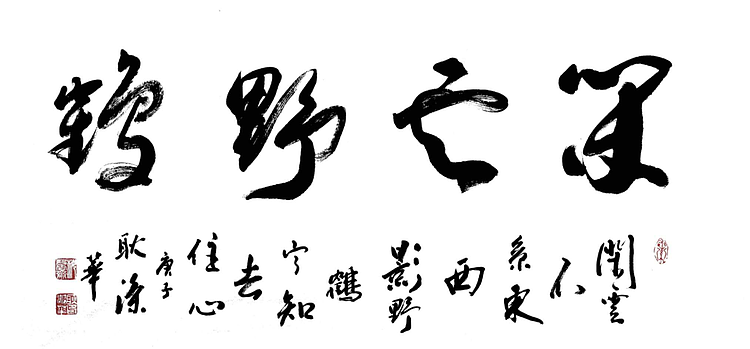 閑云野鶴
閑雲
不
系東
西
影野
鶴
宁知
去
住心
庚子
耿
華